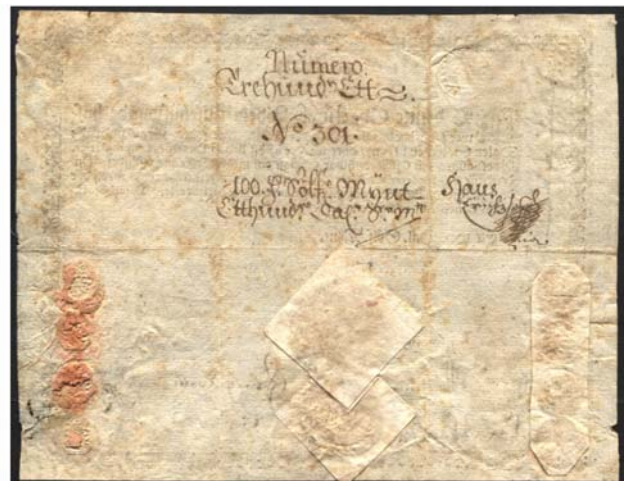 Numero
Trehundr Ett
No 301.
100. Sölf. Mÿnt
Etthundr Dal. Sr. Mt
Hans